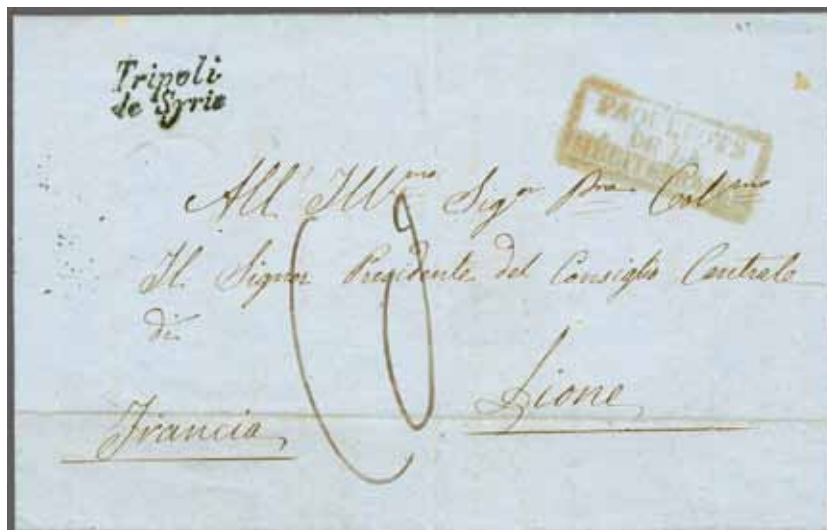 Tripoli
de Syrie
PAQUEBOTS
DE LA
MÉDITERRANÉE
All' Ill.mo Sig.r Pne Col.mo
Il Signor Presidente del Consiglio Centrale
di
Lione
Francia